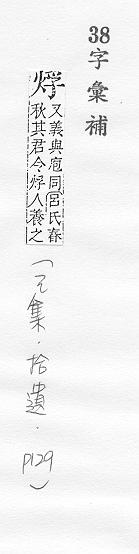 38字彙補
烰
又義與庖同呂氏春
秋其君令烰人養之
(巳集.拾遺.p129)